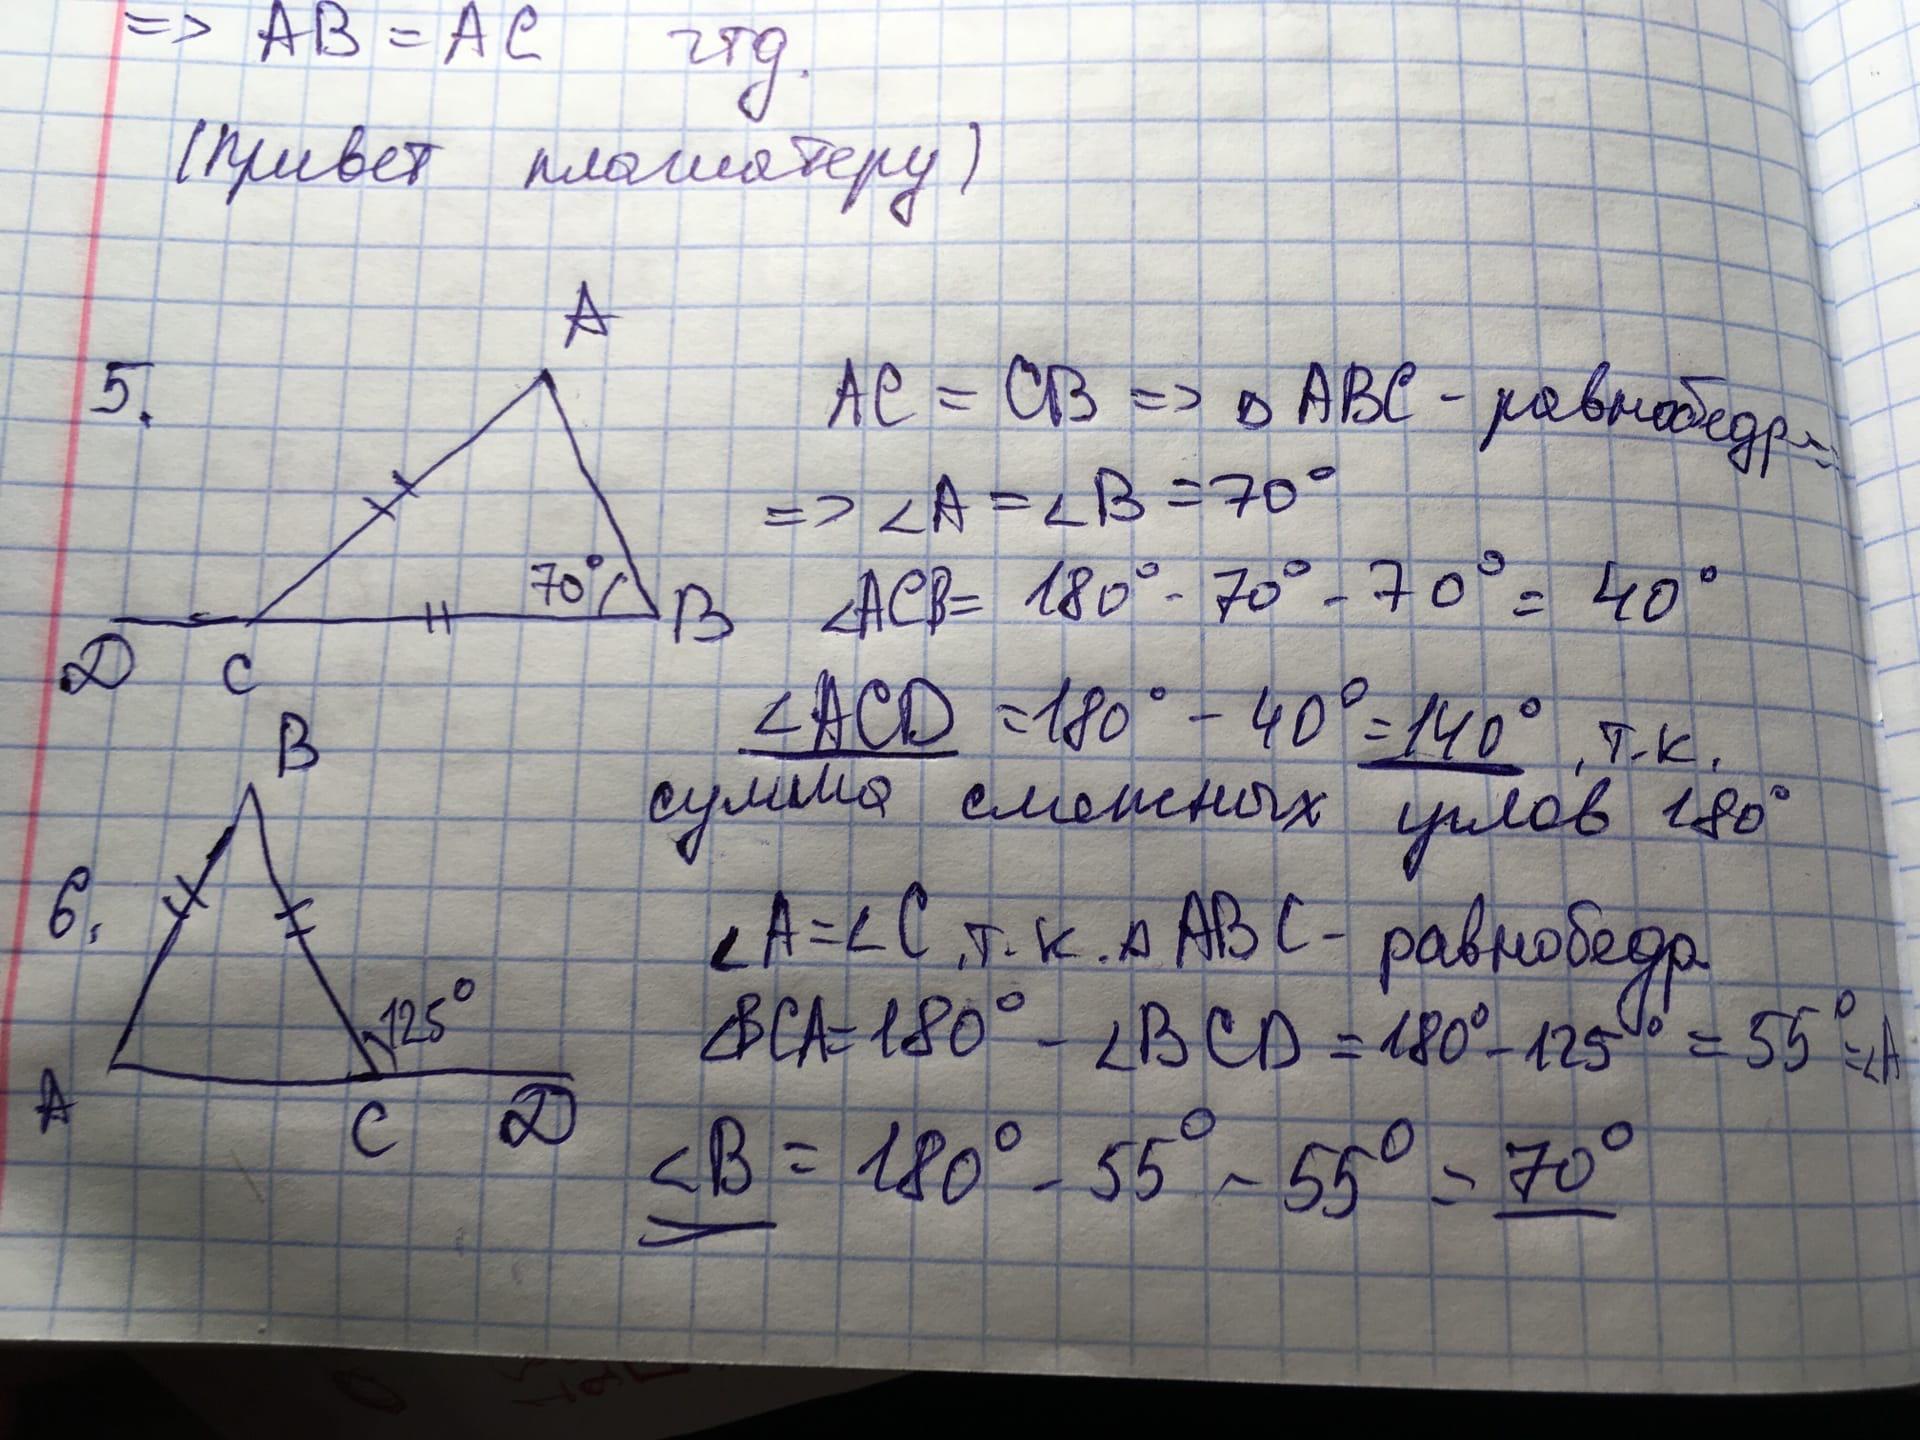 => AB = AC чтд.
(Привет плагиатеру)
A
5.
AC = CB => △ ABC - равнобедр =>
=> ∠A = ∠B = 70°
70°
B
∠ACB = 180° - 70° - 70° = 40°
D C
∠ACD = 180° - 40° = 140°, т.к.
сумма смежных углов 180°
B
6.
∠A = ∠C, т.к. △ ABC - равнобедр
125°
∠BCA = 180° - ∠BCD = 180° - 125° = 55° = ∠A
A C D
∠B = 180° - 55° - 55° = 70°